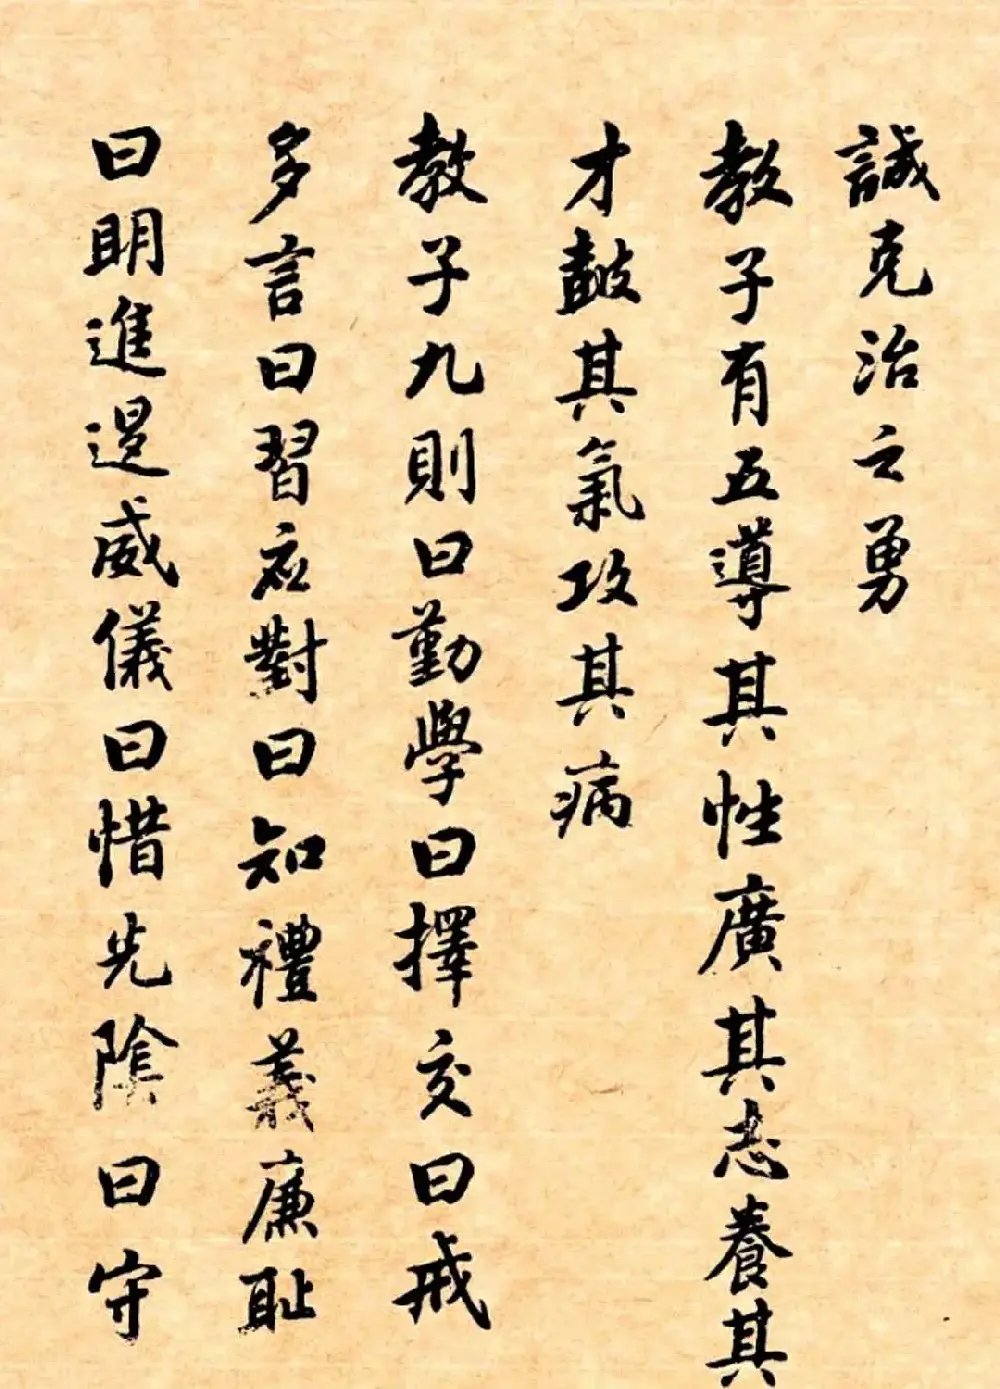 誠克治之勇
教子有五導其性廣其志養其
才鼓其氣攻其病
教子九則曰勤學曰擇交曰戒
多言曰習應對曰知禮義廉耻
曰明進退威儀曰惜光陰曰守